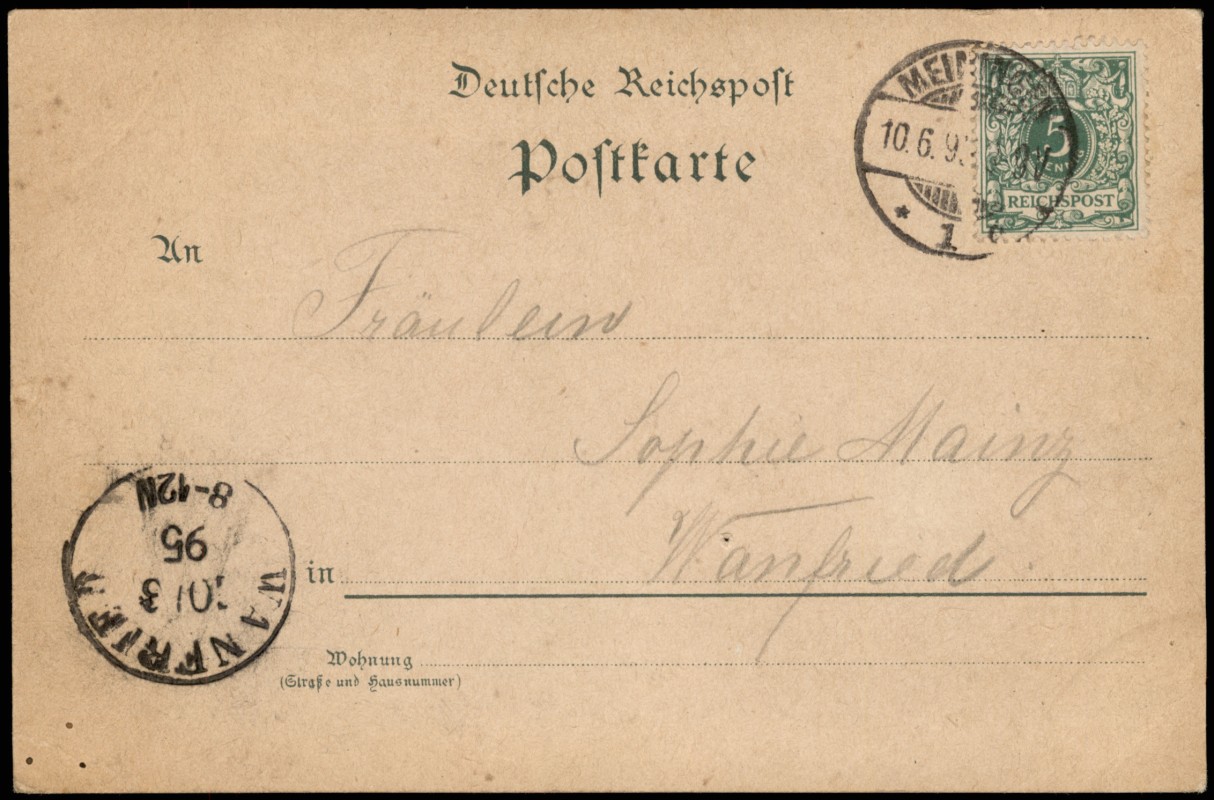 Deutsche Reichspost
Postkarte
MEININGEN
10.6.95
1 c
5
REICHSPOST
An
Fräulein
Sophie Mainz
in Wanfried
Wohnung
(Straße und Hausnummer)
WANFRIED
95
8-12N